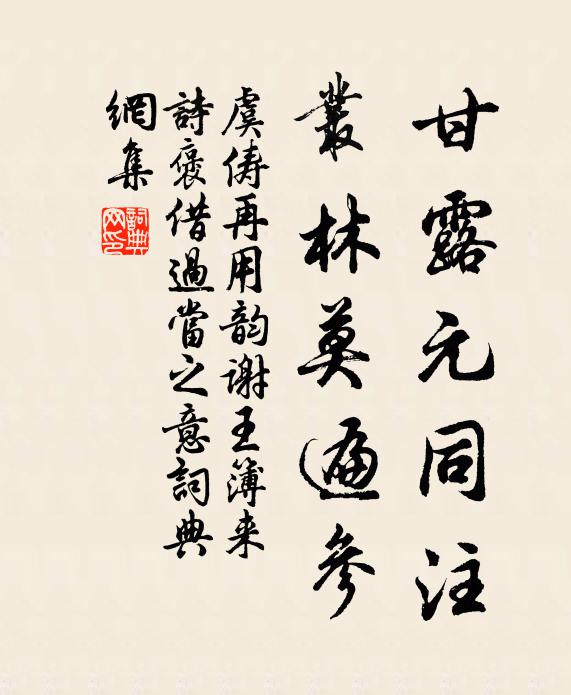 甘露元同注
叢林莫遍參
虞俦再用韵谢王簿来
詩褒借過當之意詞典
網集
詞典网印